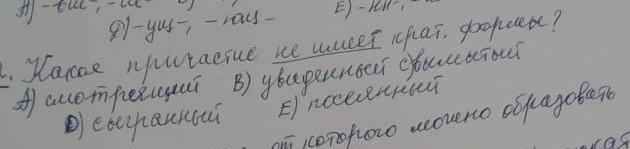 А) -вш-,
Д) -ущ-, -ющ-
Е) -нн-,
Какое причастие не имеет крат. формы?
А) смотрящий В) увиденный С) вымытый
D) сыгранный Е) посеянный
от которого можно образовать